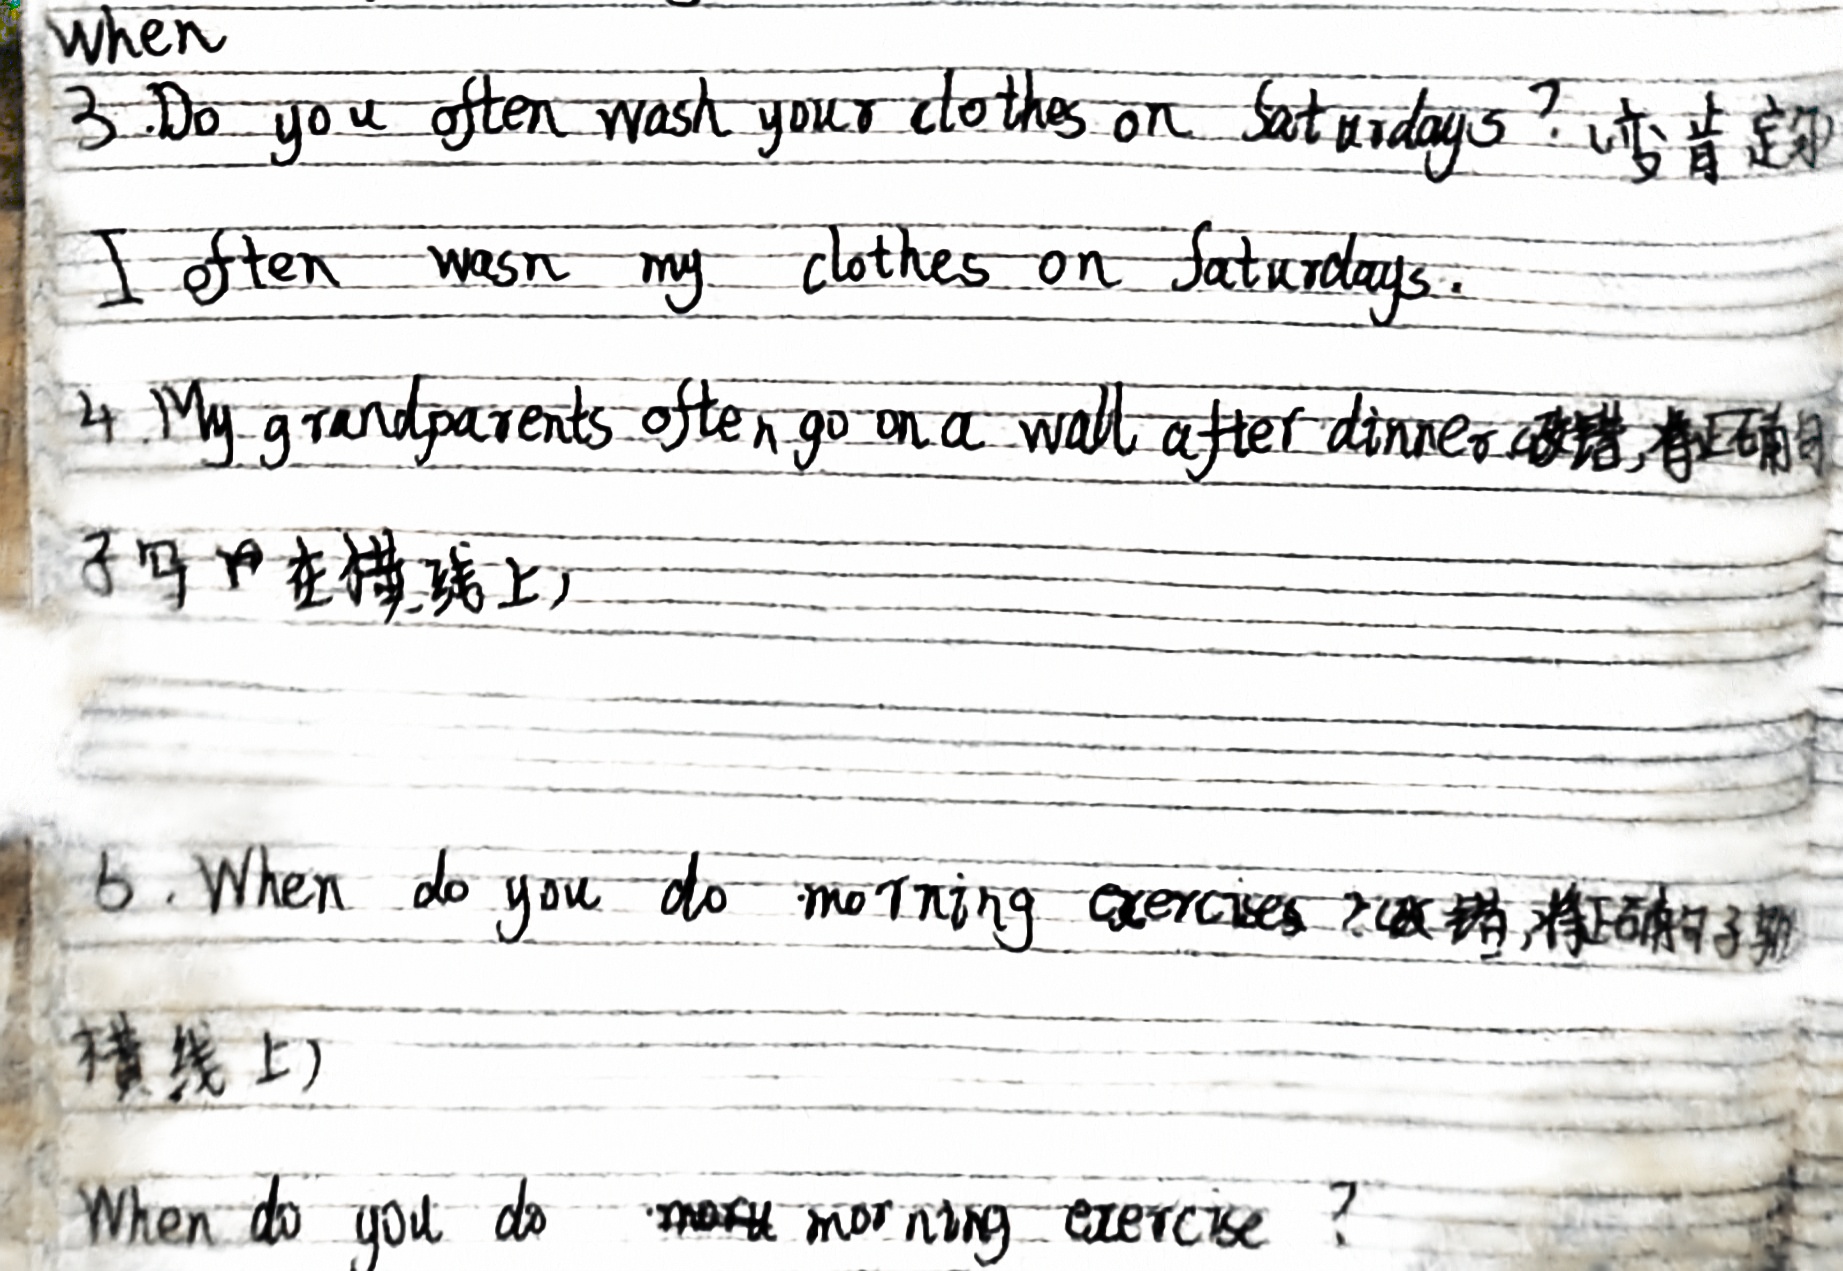 when
3.Do you often wash your clothes on Saturdays?(变肯定句
I often wasn my clothes on Saturdays.
4.My grandparents often go on a wall after dinner.(改错,将正确句
子写 在横线上)
6.When do you do morning exercises?(改错,将正确句子
横线上)
When do you do morning exercise?